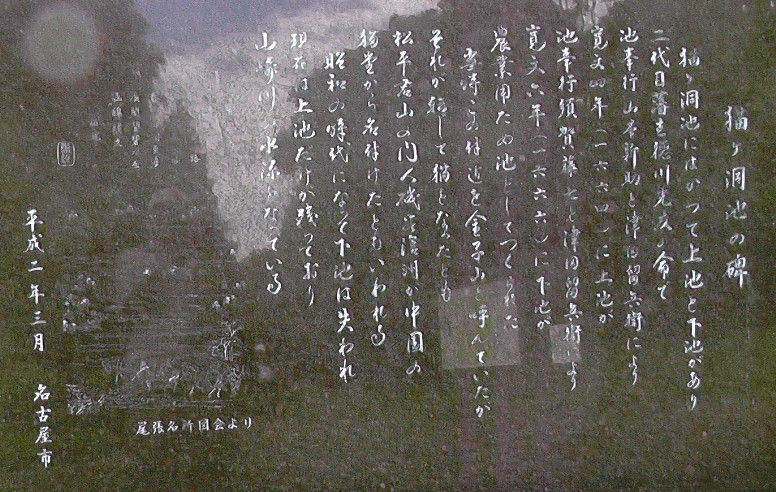 猫ヶ洞池の碑
猫ヶ洞池にはかつて上池と下池があり
二代目藩主徳川光友の命で
池奉行山本新助と津田留兵衛により
寛文四年(一六六四)に上池が
池奉行須賀藤七と津田留兵衛により
寛文六年(一六六六)に下池が
農業用ため池としてつくられた
当時この付近を金子山と呼んでいたが
それが転じて猫となったとも
松平君山の門人磯谷滄洲が中国の
猫堂から名付けたともいわれる
昭和の時代になって下池は失われ
現在は上池だけが残っており
山崎川の水源となっている
尾張名所図会より
平成二年三月 名古屋市